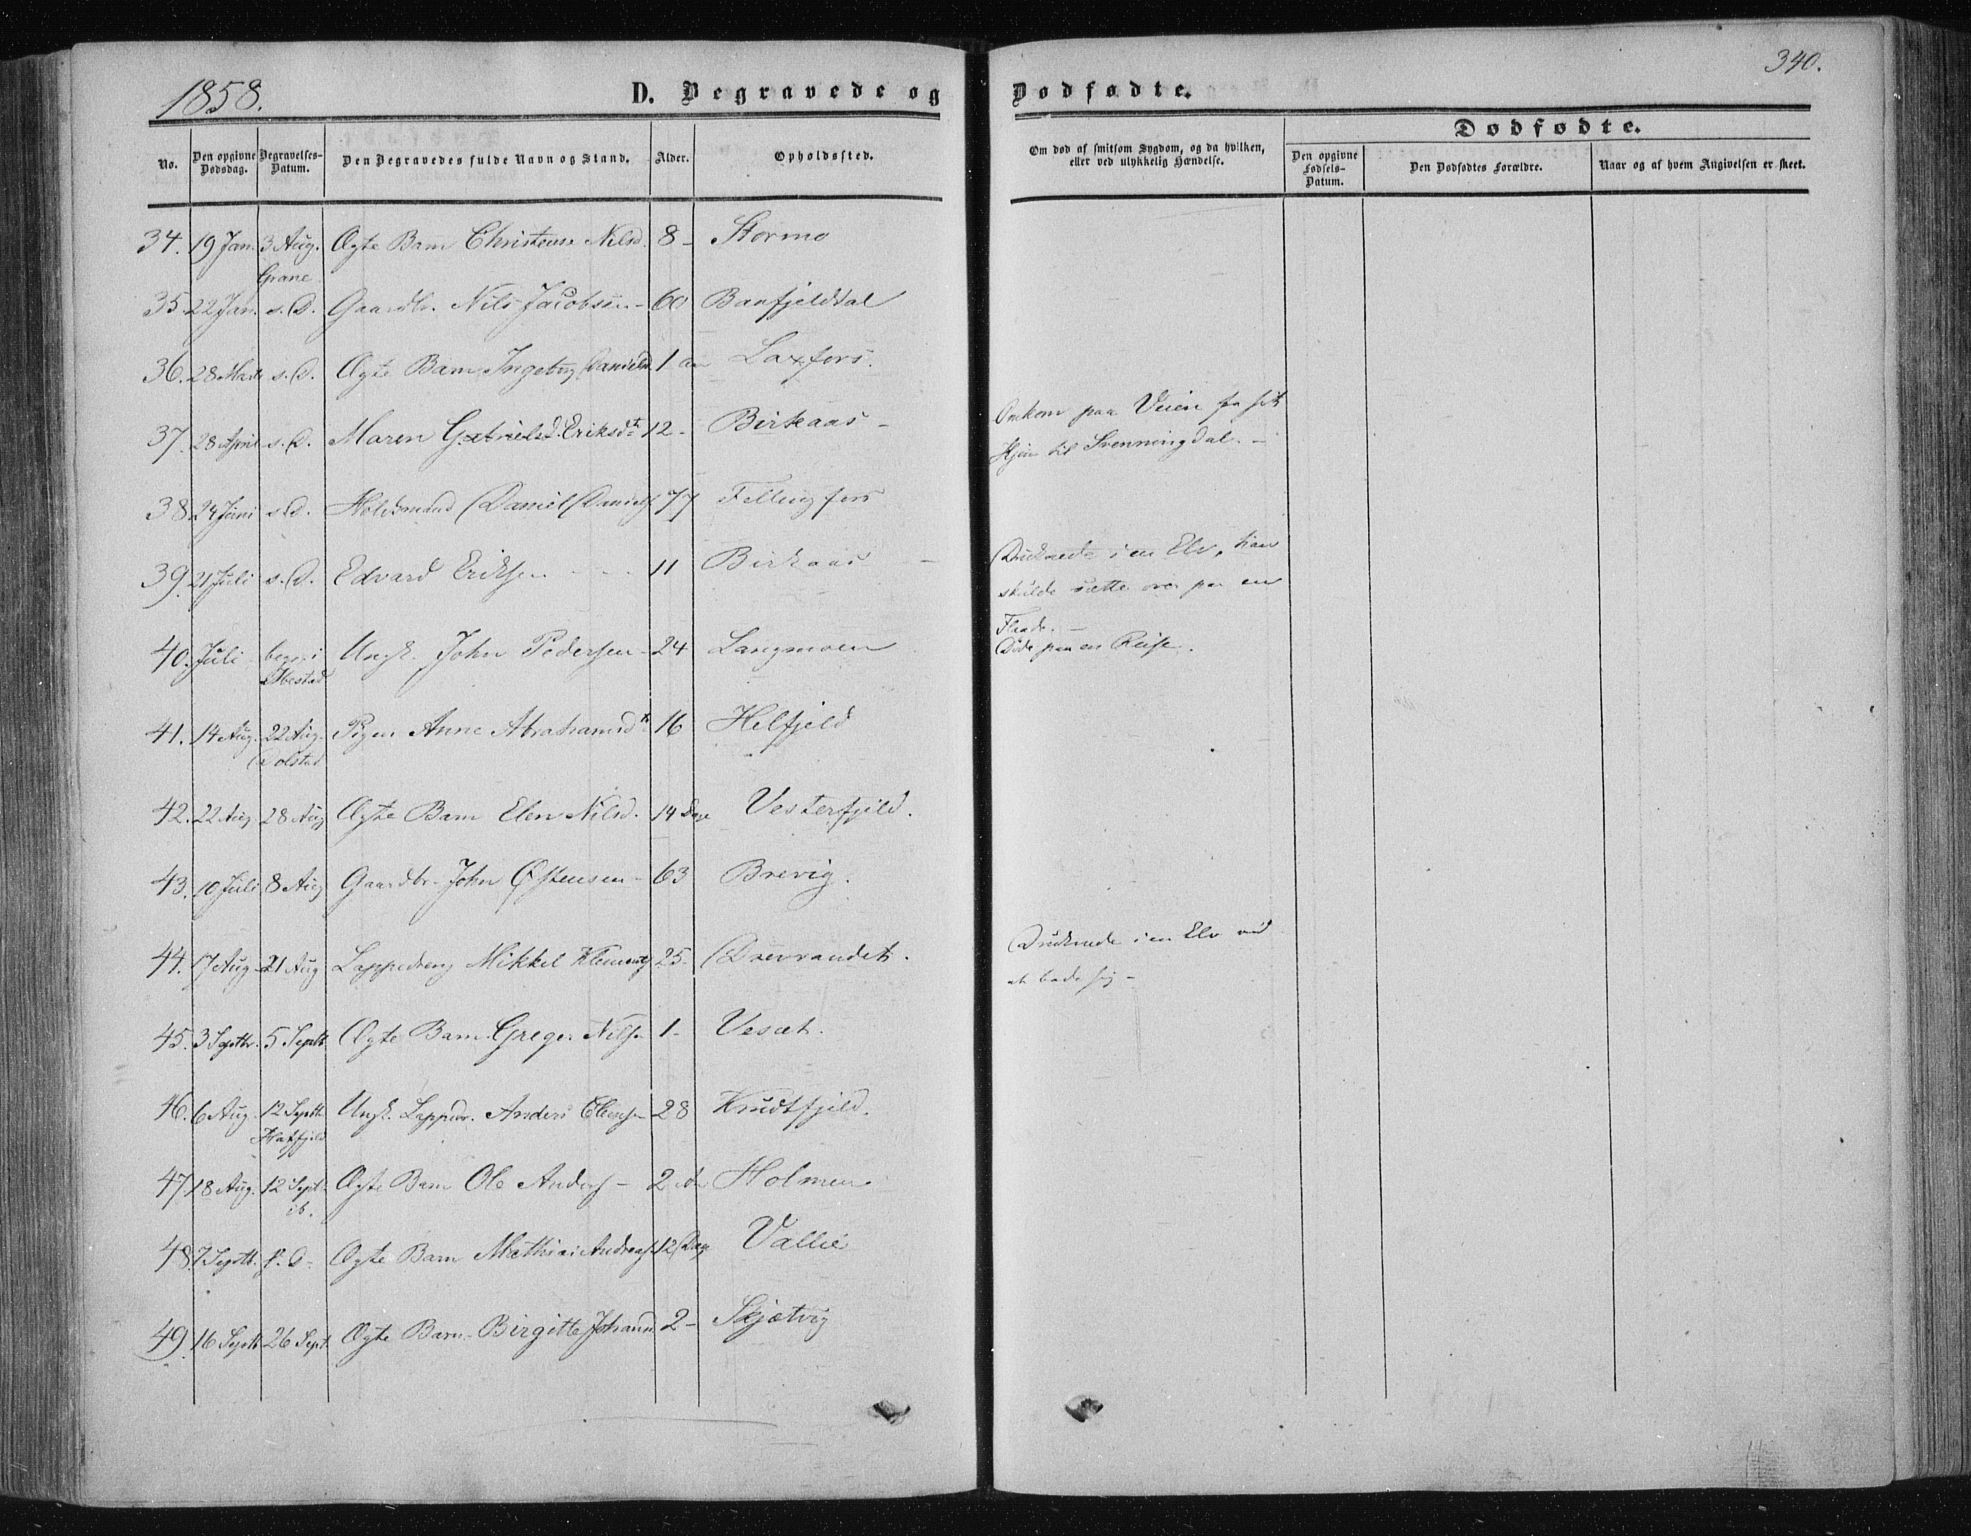 1858.
D. Begravede og
Dødfødte.
340.
No.
Den opgivne Dødsdag.
Begravelses-Datum.
Den Begravedes fulde Navn og Stand.
Alder.
Opholdssted.
Om død af smitsom Sygdom, og da hvilken,
eller ved ulykkelig Hændelse.
Dødfødte.
Den opgivne Fødsels-Datum.
Den Dødfødtes Forældre.
Naar og af hvem Angivelsen er skeet.
34. 19 Jan. 3 Aug. Ægte Barn Christense Nilsd. 8 - Stormo
Grane
35. 22 Jan. s. D. Gaardbr. Nils Jacobsen - 60 Baafjelddal
36. 28 Marts s. D. Ægte Barn Ingebrg Danielsd. 1 Laxfors.
37. 28 April s. D. Maren Eriksdt. 12 - Birkaas - Omkom paa Veien fra sit
Hjem til Svenningdal. -
38. 24 Juni s. D. Daniel Daniels. 77 Fellingfors
39. 21 Juli s. D. Edvard Eriksen - 11 Birkaas - Druknede i en Elv, han
skulde sætte over paa en
Flaade. -
40. Juli begr. i Ungk. John Pedersen - 24 Langmoen Døde paa en Reise.
Ibestad
41. 14 Aug. 22 Aug. Pigen Anne Abrahamsdt. 16 Helfjeld
Dolstad
42. 22 Aug. 28 Aug Ægte Barn Elen Nilsd. 14 Dage Vesterfjeld.
43. 10 Juli 8 Aug Gaardbr. John Østensen - 63 Brevig.
44. 17 Aug. 21 Aug Lappedreng Mikkel Klements. 25 - Drevvandet. Druknede i en Elv ved
at bade sig -
45. 3 Septbr. 5 Septb. Ægte Barn Greger Nilsen 1 - Vesæt.
46. 6 Aug. 12 Septb. Ungk. Anders 28 Krudtfjeld.
Hatfjeld
47. 18 Aug. 12 Sept. Ægte Barn Ole Anders. - 2 Holmen
ib.
48. 7 Septb. s. D. Ægte Barn Mathias Andreas. 12 Dage Vallie
49. 16 Septb. 26 Sept. Ægte Barn Birgitte Johansd. 2 - Skjætvig